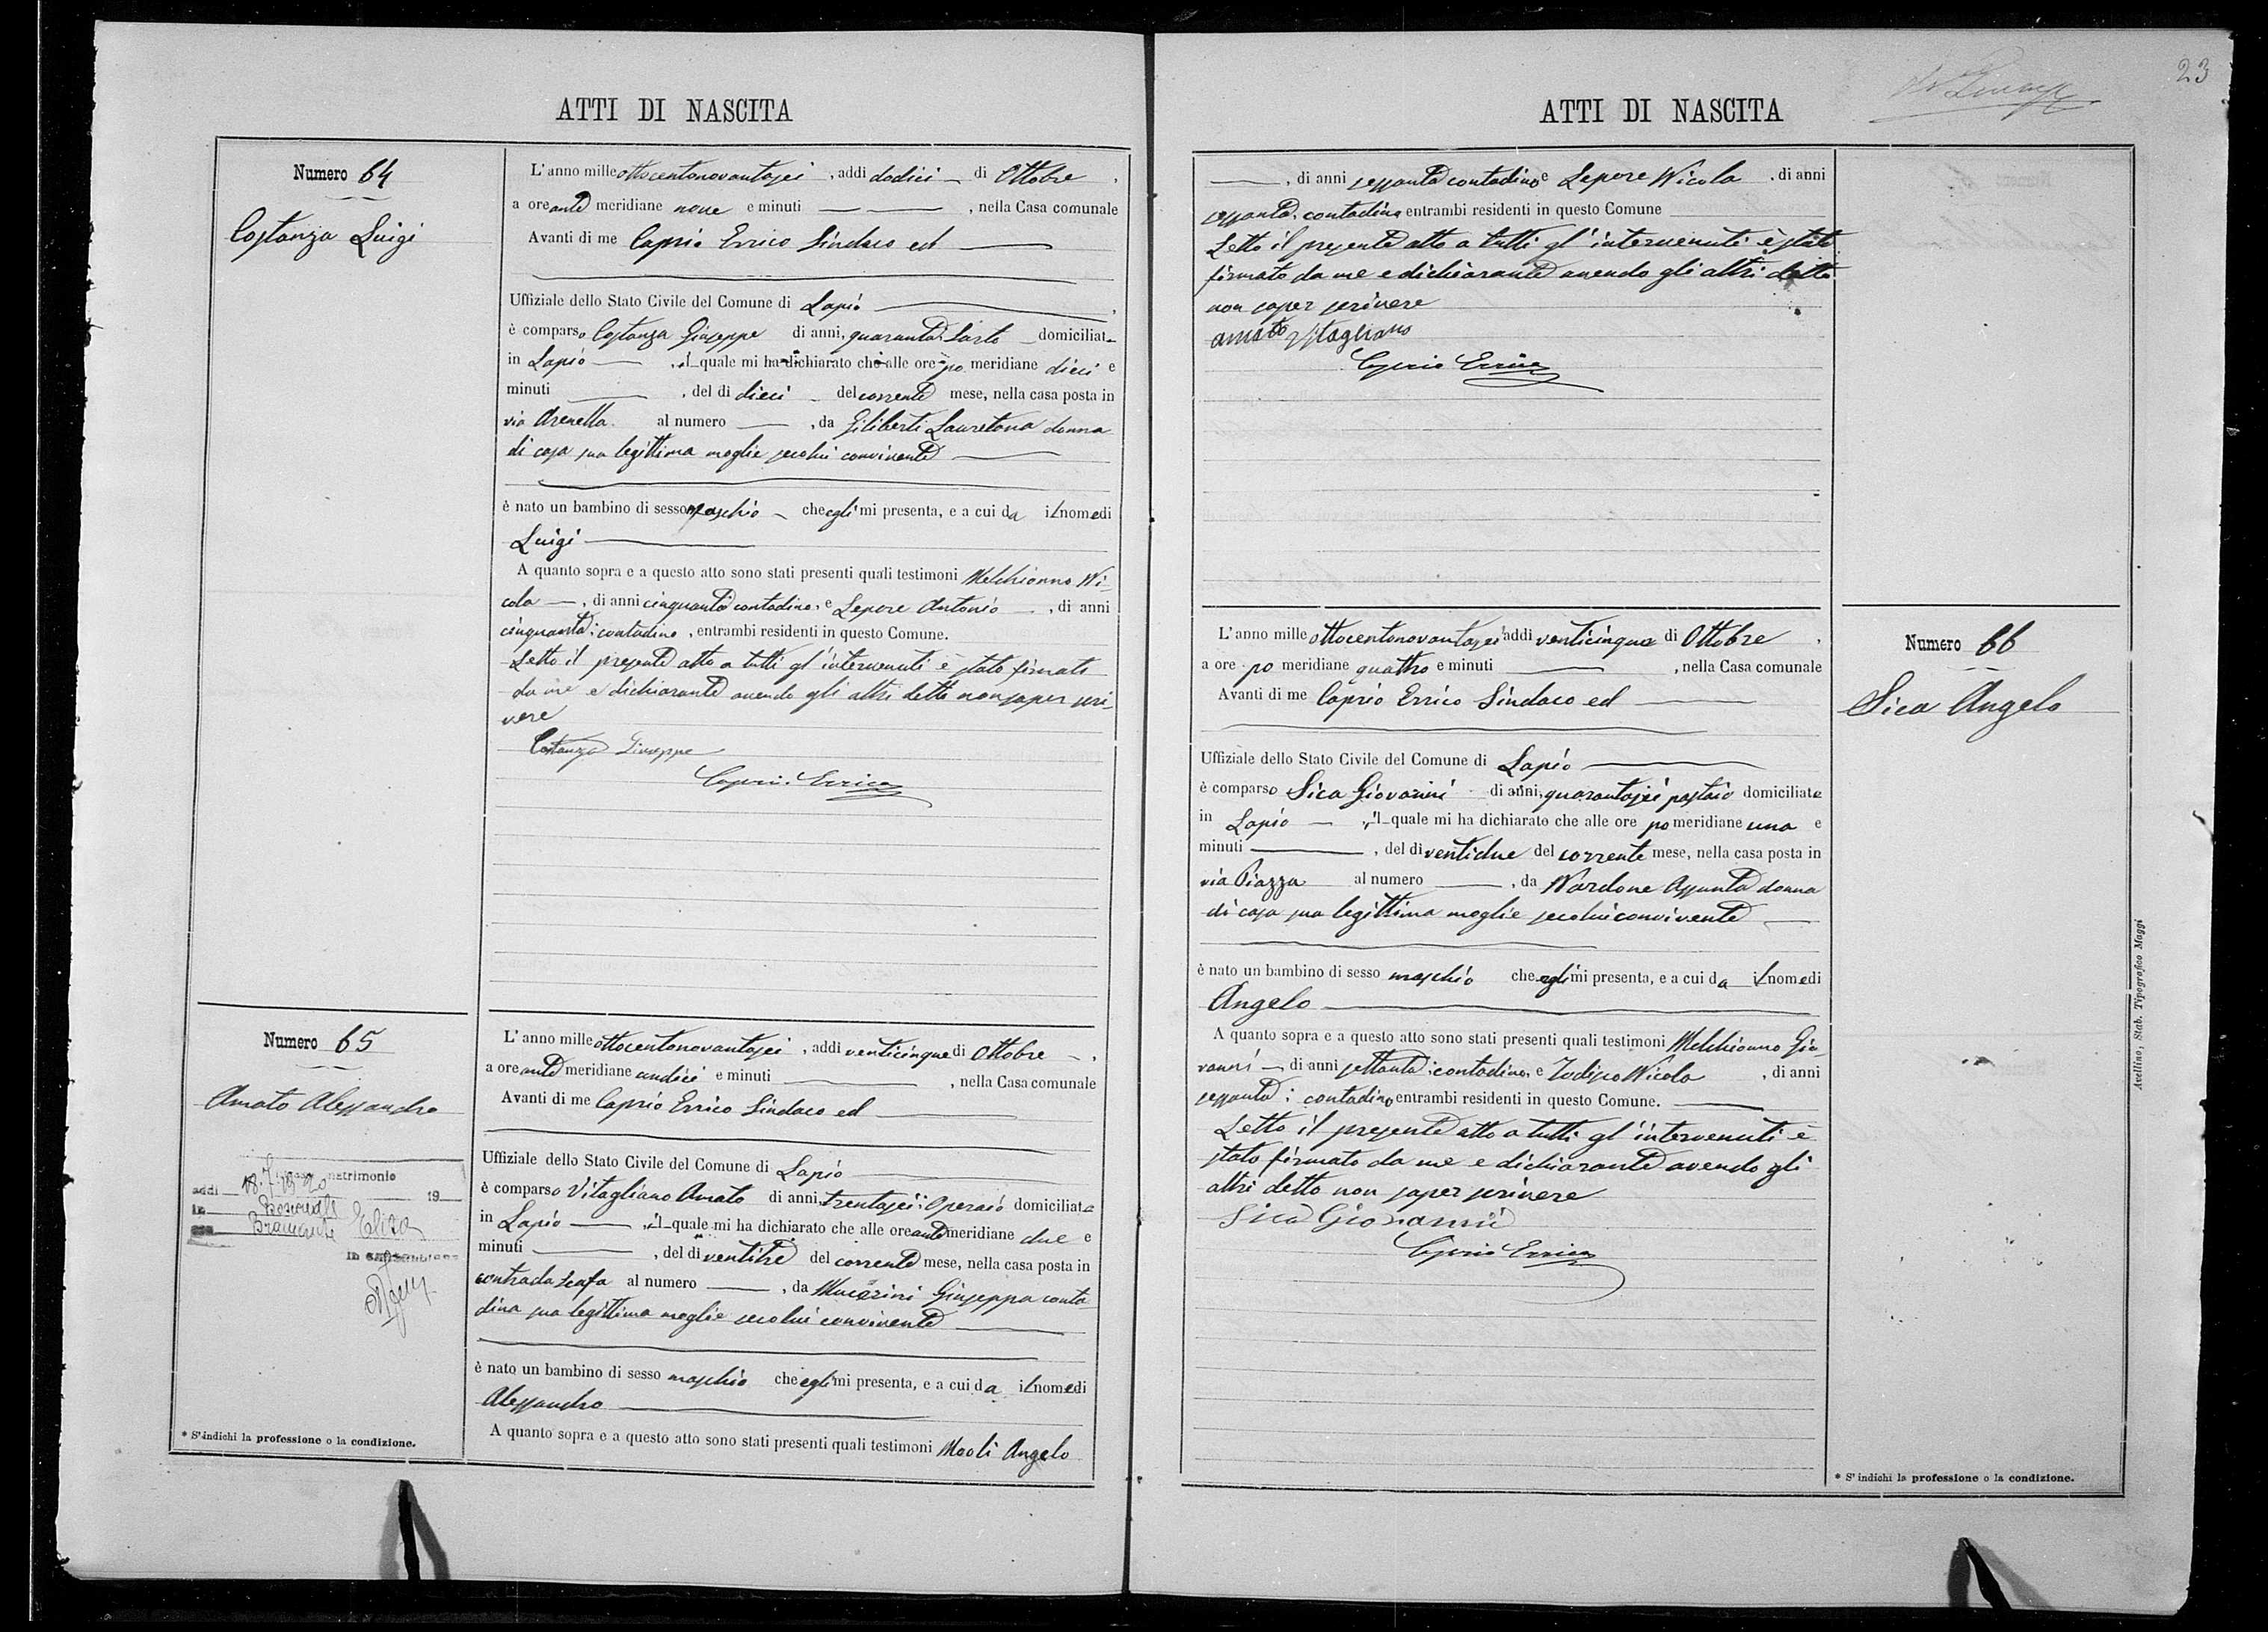 ATTI DI NASCITA
Numero 64
Costanza Luigi
L'anno milleottocentonovantasei, addì dodici di Ottobre,
a ore ante meridiane nove e minuti, nella Casa comunale
Avanti di me Caprio Errico Sindaco ed
Uffiziale dello Stato Civile del Comune di Lapio
è comparso Costanza Giuseppe di anni, quaranta Sarto domiciliat
in Lapio, il quale mi ha dichiarato che alle ore po meridiane dieci e
minuti, del dì dieci del corrente mese, nella casa posta in
via Arenella al numero, da Giliberti Lauretana donna
di casa sua legittima moglie secolui convivente
è nato un bambino di sesso maschio che egli mi presenta, e a cui da il nome di
Luigi
A quanto sopra e a questo atto sono stati presenti quali testimoni Melchionno Ni-
cola, di anni cinquanta contadino, e Lepore Antonio, di anni
cinquanta: contadino, entrambi residenti in questo Comune.
Letto il presente atto a tutti gl'intervenuti è stato firmato
da me e dichiarante avendo gli altri detto non saper scri-
vere
Costanza Giuseppe
Caprio Errico
Numero 65
Amato Alessandro
matrimonio
addì 18.7.1920 19
in
con Elisa
L'anno milleottocentonovantasei, addì venticinque di Ottobre,
a ore ante meridiane undici e minuti, nella Casa comunale
Avanti di me Caprio Errico Sindaco ed
Uffiziale dello Stato Civile del Comune di Lapio
è comparso Vitagliano Amato di anni, trentasei: Operaio domiciliato
in Lapio, il quale mi ha dichiarato che alle ore ante meridiane due e
minuti, del dì ventitre del corrente mese, nella casa posta in
contrada Scafa al numero, da Giuseppa conta
dina sua legittima moglie secolui convivente
è nato un bambino di sesso maschio che egli mi presenta, e a cui da il nome di
Alessandro
A quanto sopra e a questo atto sono stati presenti quali testimoni Maoli Angelo
* S'indichi la professione o la condizione.
23
ATTI DI NASCITA
, di anni sessanta contadino e Lepore Nicola, di anni
sessanta, contadino entrambi residenti in questo Comune
Letto il presente atto a tutti gl'intervenuti è stato
firmato da me e dichiarante avendo gli altri detto
non saper scrivere
amato Vitagliano
Caprio Errico
L'anno milleottocentonovantasei addì venticinque di Ottobre,
a ore po meridiane quattro e minuti, nella Casa comunale
Avanti di me Caprio Errico Sindaco ed
Uffiziale dello Stato Civile del Comune di Lapio
è comparso Sica Giovanni di anni, quarantasei pastaio domiciliato
in Lapio, il quale mi ha dichiarato che alle ore po meridiane una e
minuti, del dì ventidue del corrente mese, nella casa posta in
via Piazza al numero, da Nardone Assunta donna
di casa sua legittima moglie secolui convivente
è nato un bambino di sesso maschio che egli mi presenta, e a cui da il nome di
Angelo
A quanto sopra e a questo atto sono stati presenti quali testimoni Melchionno Gio-
vanni di anni settanta: contadino, e Todisco Nicola, di anni
sessanta; contadino entrambi residenti in questo Comune.
Letto il presente atto a tutti gl'intervenuti è
stato firmato da me e dichiarante avendo gli
altri detto non saper scrivere
Sica Giovanni
Caprio Errico
Numero 66
Sica Angelo
* S'indichi la professione o la condizione.
Avellino, Stab. Tipografico Maggi